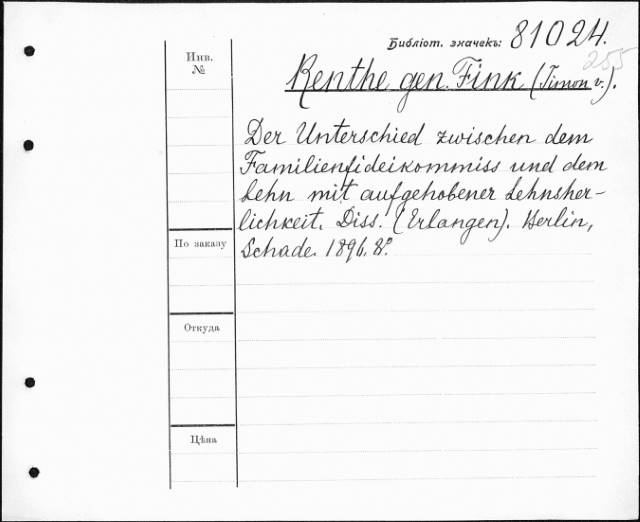 Библіот. значекъ: 81024.
255
Инв.
№
Renthe gen. Fink (Timon v.).
Der Unterschied zwischen dem
Familienfideikommiss und dem
Lehn mit aufgehobener Lehnsher-
lichkeit. Diss. (Erlangen). Berlin,
Schade. 1896. 8º.
По заказу
Откуда
Цѣна